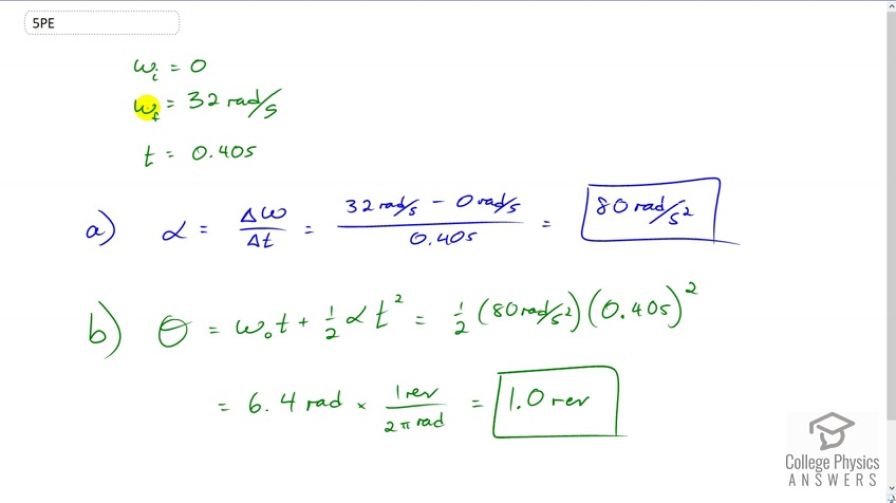 5PE
ωᵢ = 0
ω_f = 32 rad/s
t = 0.40s
a) α = Δω/Δt = (32 rad/s − 0 rad/s)/0.40s = 80 rad/s²
b) θ = ω₀t + ½αt² = ½(80 rad/s²)(0.40s)²
= 6.4 rad × 1rev/2π rad = 1.0 rev
College Physics
ANSWERS